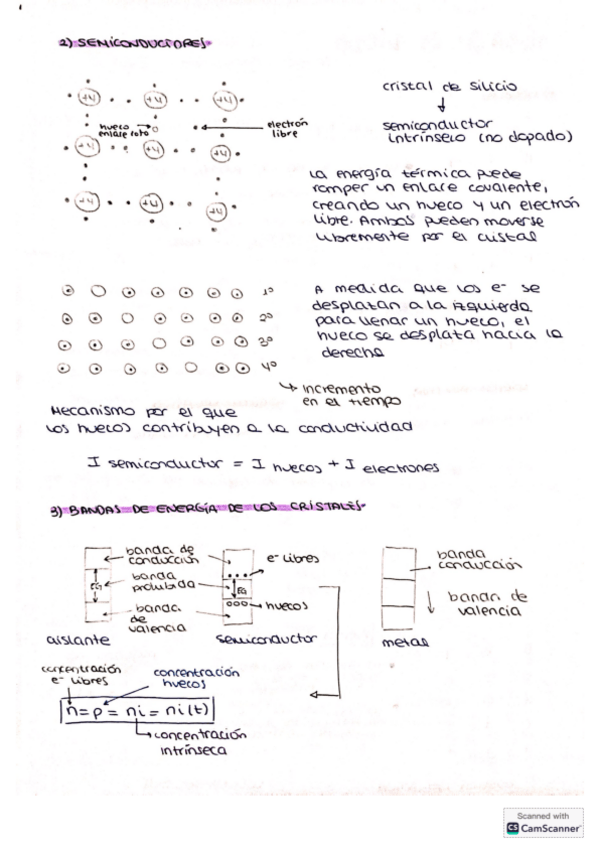 2) SEMICONDUCTORES
+4 +4 +4
hueco
enlace roto
electrón
libre
+4 +4 +4
+4 +4 +4
cristal de silicio
↓
semiconductor
intrínseco (no dopado)
La energía térmica puede
romper un enlace covalente,
creando un hueco y un electrón
libre. Ambos pueden moverse
libremente por el cristal
1º
2º
3º
4º
↳ Incremento
en el tiempo
A medida que los e⁻ se
desplatan a la izquierda
para llenar un hueco, el
hueco se desplata hacia la
derecha
Mecanismo por el que
los huecos contribuyen a la conductividad
I semiconductor = I huecos + I electrones
3) BANDAS DE ENERGÍA DE LOS CRISTALES
banda de
conducción
EG
banda
prohibida
banda
de
valencia
aislante
EG
e⁻ libres
huecos
semiconductor
banda
conducción
banda de
valencia
metal
concentración
e⁻ libres
concentración
huecos
n = p = ni = ni(t)
concentración
intrínseca
Scanned with
CS CamScanner